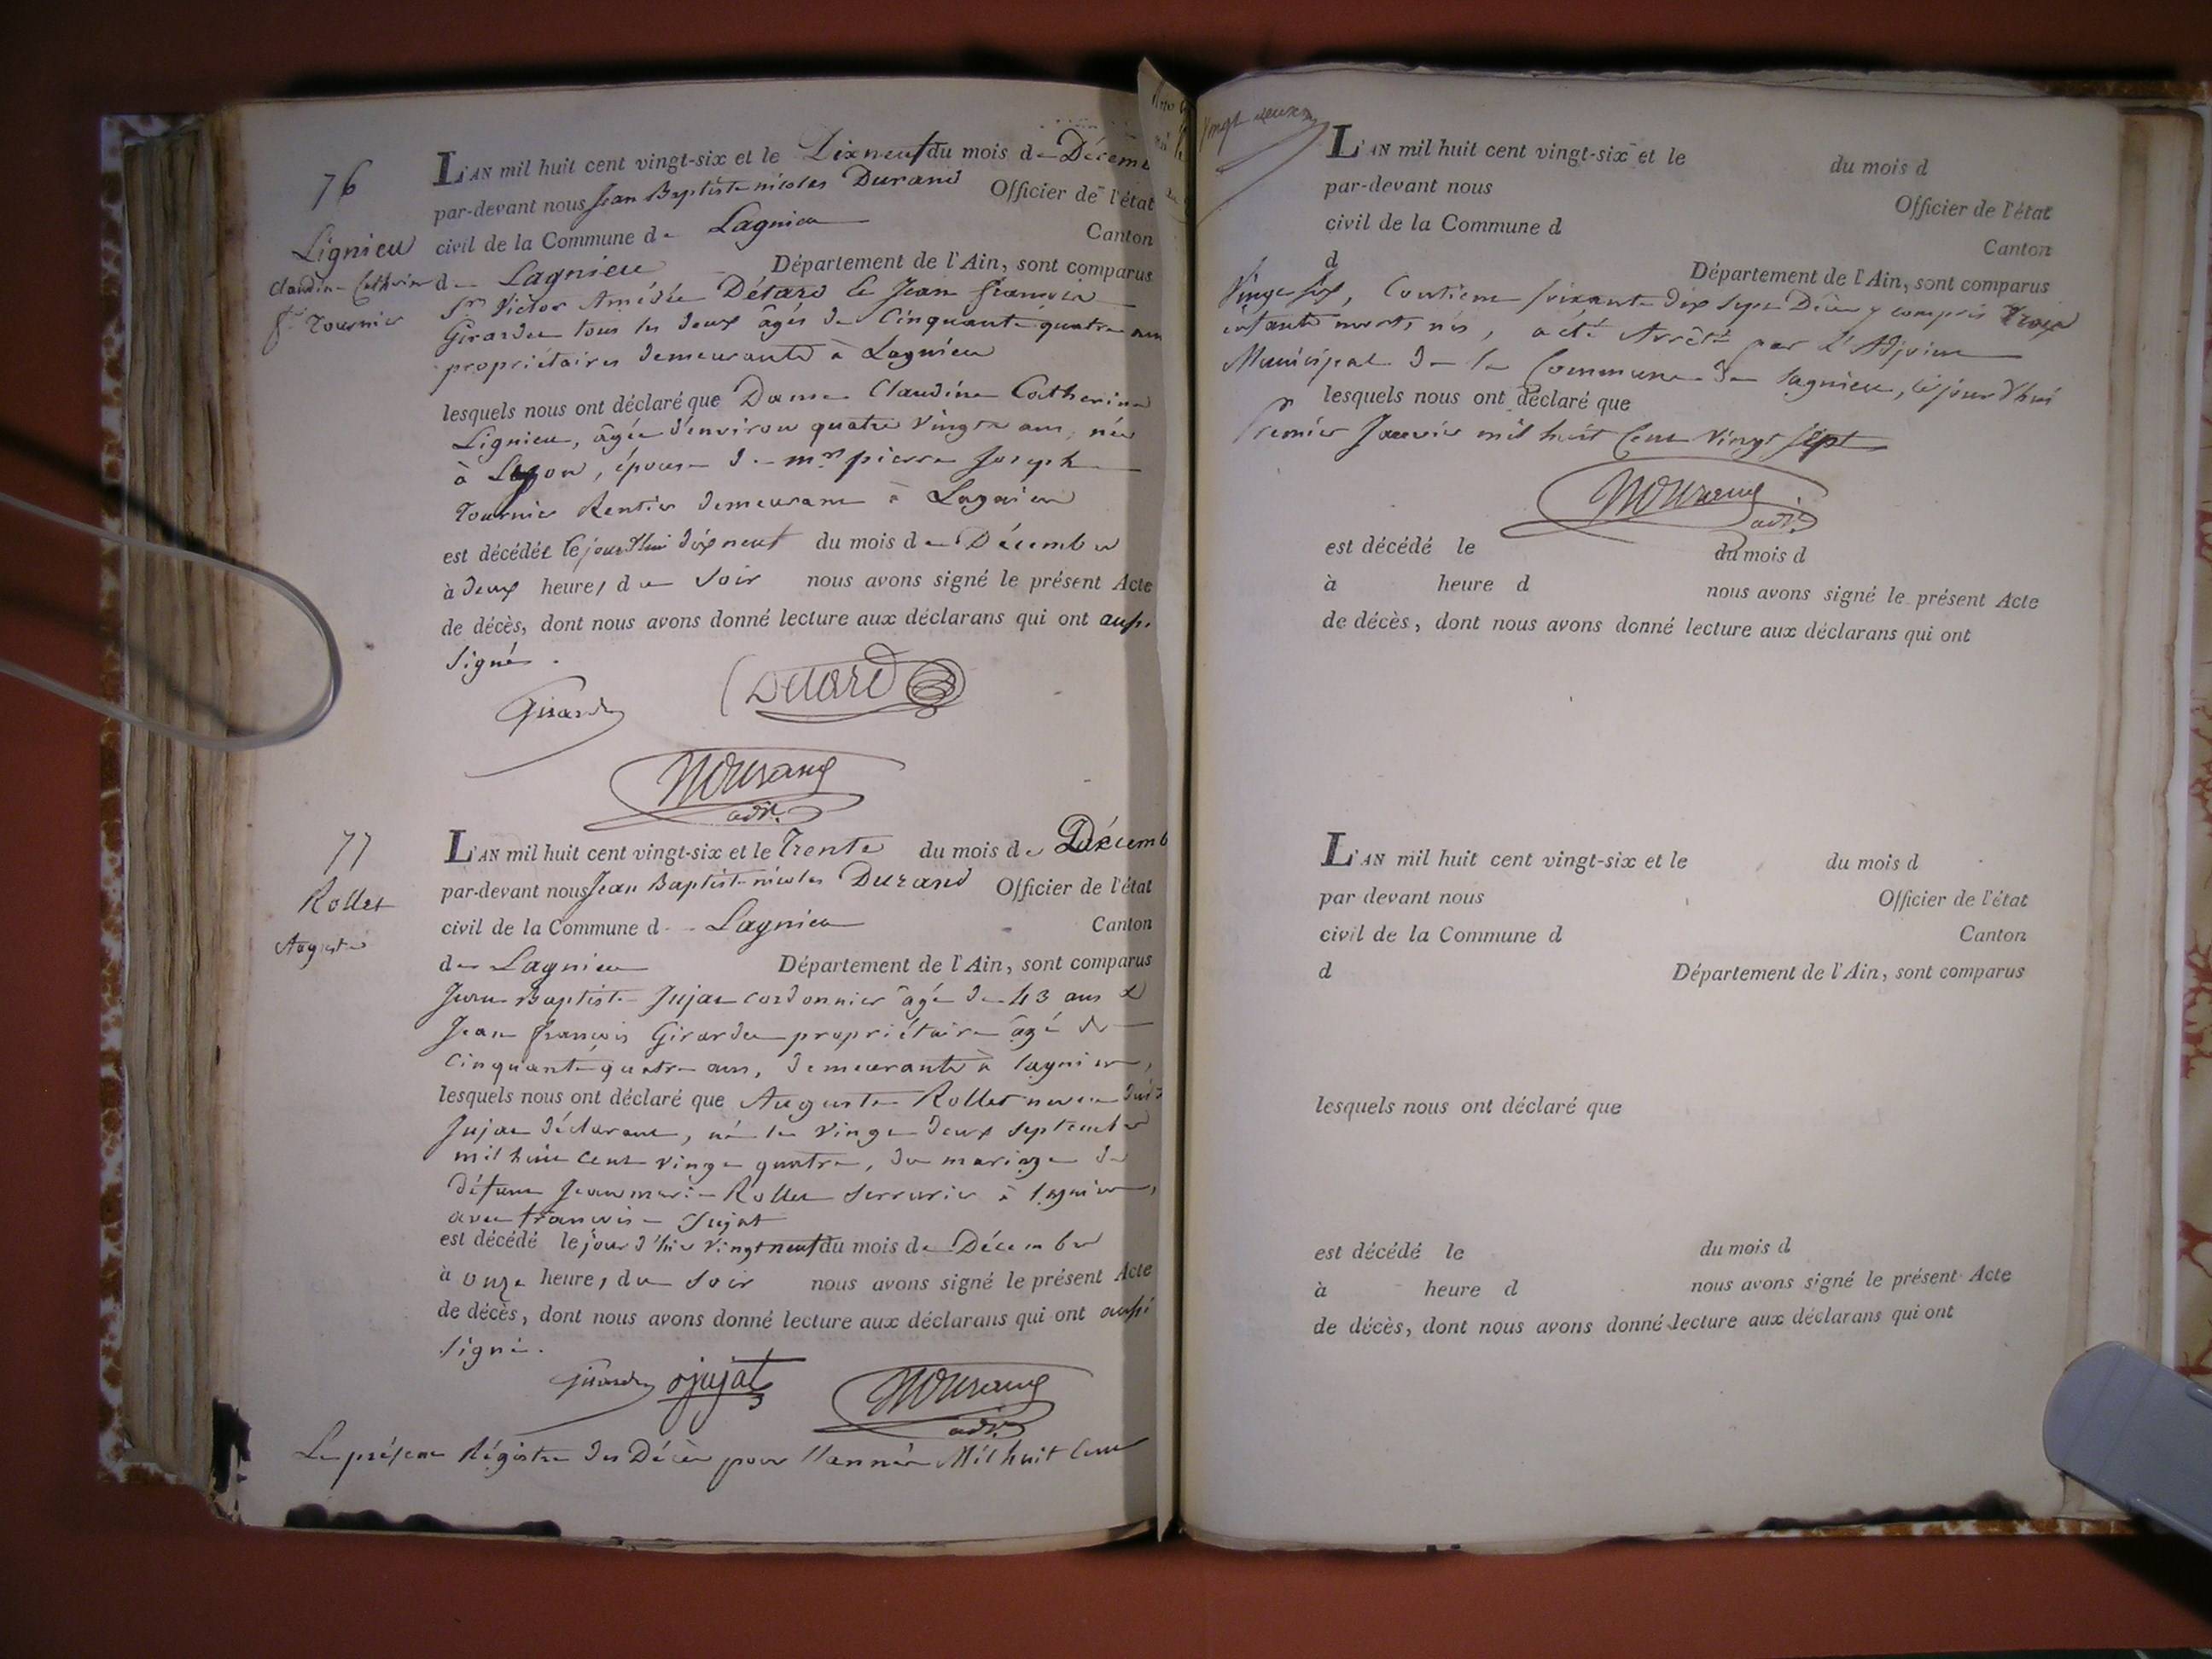 76
Lignieu
Claudine Catherine
fe Tournier
L'AN mil huit cent vingt-six et le Dixneuf du mois de Décemb
par-devant nous Jean Baptiste nicolas Durand Officier de l'état
civil de la Commune de Lagnieu Canton
de Lagnieu Département de l'Ain, sont comparus
Sr Victor Amédée Détard & Jean françois
Girardet tous les deux âgés de Cinquante quatre ans
propriétaires demeurants à Lagnieu
lesquels nous ont déclaré que Dame Claudine Catherine
Lignieu, âgée d'environ quatre vingts ans, née
à Lyon, épouse de mr pierre Joseph
Tournier Rentier demeurant à Lagnieu
est décédée cejourd'hui dixneuf du mois de Décembre
à deux heures du soir nous avons signé le présent Acte
de décès, dont nous avons donné lecture aux déclarans qui ont aussi
signé.
Girardet Détard
Durand
adj.
77
Rollet
Auguste
L'AN mil huit cent vingt-six et le Trente du mois de Décemb
par-devant nous Jean Baptiste nicolas Durand Officier de l'état
civil de la Commune de Lagnieu Canton
de Lagnieu Département de l'Ain, sont comparus
Jean Baptiste Jujat cordonnier âgé de 43 ans &
Jean françois Girardet propriétaire âgé de
Cinquante quatre ans, demeurants à lagnieu,
lesquels nous ont déclaré que Auguste Rollet neveu dudt
Jujat déclarant, né le vingt deux septembre
mil huit cent vingt quatre, du mariage de
défunt Jean marie Rollet serrurier à lagnieu,
avec françoise Jujat
est décédé le jour d'hier vingtneuf du mois de Décembre
à onze heures du soir nous avons signé le présent Acte
de décès, dont nous avons donné lecture aux déclarans qui ont aussi
signé.
Girardet Jujat Durand
adj.
Le présent Régistre des Décès pour l'année Mil huit Cent
vingt deux
L'AN mil huit cent vingt-six et le du mois d
par-devant nous Officier de l'état
civil de la Commune d Canton
d Département de l'Ain, sont comparus
Vingt six, Contient soixante dix sept Décès y compris trois
enfants morts nés, a été Arrêté par l'Adjoint
Municipal de la Commune de lagnieu, cejourd'hui
lesquels nous ont déclaré que
Premier Janvier mil huit Cent Vingt sept
Durand
adj.
est décédé le du mois d
à heure d nous avons signé le présent Acte
de décès, dont nous avons donné lecture aux déclarans qui ont
L'AN mil huit cent vingt-six et le du mois d
par devant nous Officier de l'état
civil de la Commune d Canton
d Département de l'Ain, sont comparus
lesquels nous ont déclaré que
est décédé le du mois d
à heure d nous avons signé le présent Acte
de décès, dont nous avons donné lecture aux déclarans qui ont